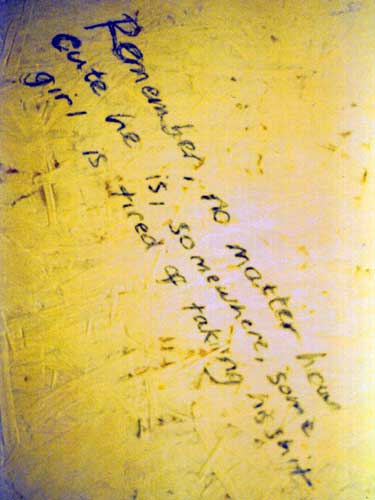 Remember, no matter how
cute he is, somewhere, some
girl is tired of taking his shit